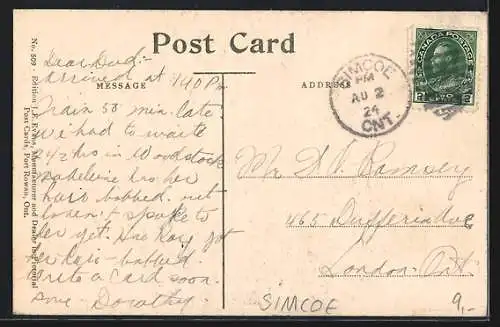 Post Card
MESSAGE
ADDRESS
No. 509 - Edition J. F. Evans, Manufacturer and Dealer in Pictorial
Post Cards, Port Rowan, Ont.
Dear Dad:-
arrived at 1.40 Pm
Train 50 min. late
We had to waite
2 1/2 hrs in Woodstock
Madeleine has her
hair bobbed. not
spoke to
her yet. Has Kay got
her hair bobbed.
Write a Card soon.
Dorothy.
SIMCOE
PM
AU 2
24
ONT.
CANADA POSTAGE
2 2
Mr. D. V. Ramsey
465 Dufferin Ave
London Ont.
SIMCOE
9,-